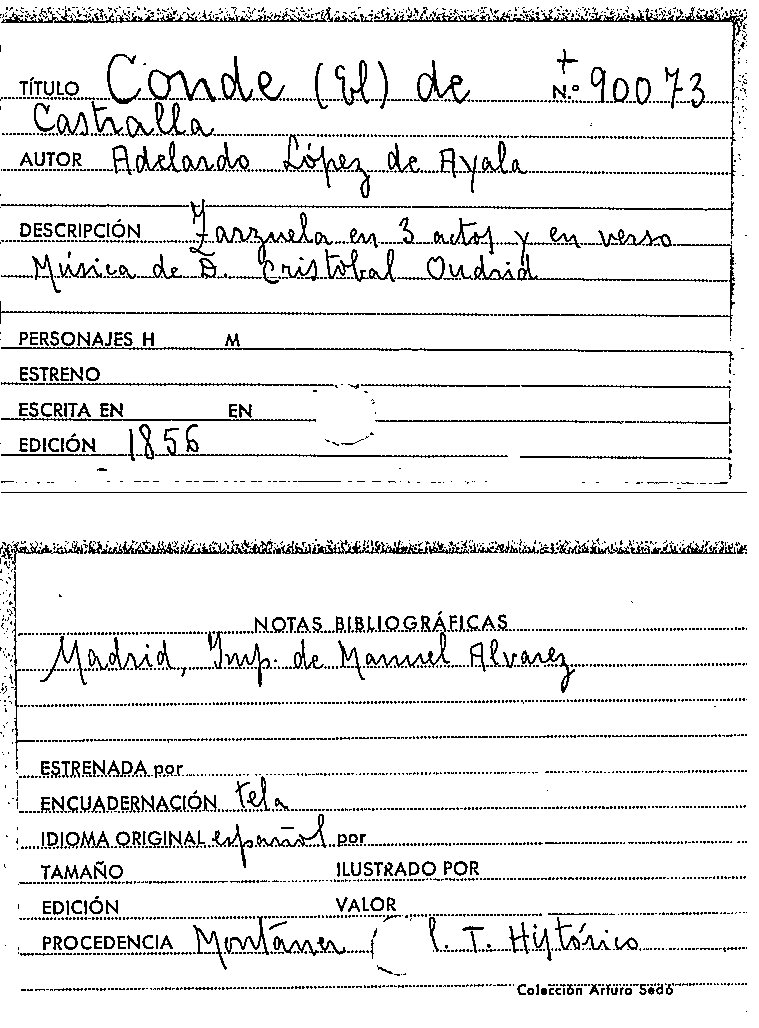 TÍTULO Conde (El) de + N.º 90073
Castralla
AUTOR Adelardo López de Ayala
DESCRIPCIÓN Zarzuela en 3 actos y en verso
Música de D. Cristobal Oudrid
PERSONAJES H M
ESTRENO
ESCRITA EN EN
EDICIÓN 1856
NOTAS BIBLIOGRÁFICAS
Madrid, Imp. de Manuel Alvarez
ESTRENADA por
ENCUADERNACIÓN tela
IDIOMA ORIGINAL español por
TAMAÑO ILUSTRADO POR
EDICIÓN VALOR
PROCEDENCIA Montaner l. T. Histórico
Colección Arturo Sedó